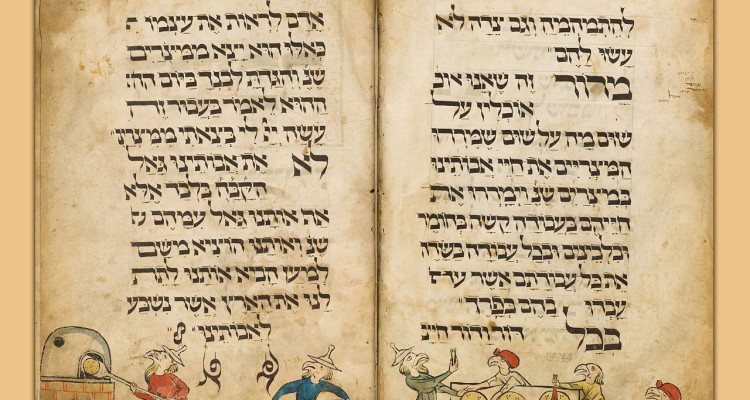 להתמהמה וגם צדה לא
עשו להם
מרור זה שאנו או
אוכלין על
שום מה על שום שמררו
המצריים את חיי אבותינו
במצרים שנ' וימררו את
חייהם בעבודה קשה בחומר
ובלבינים ובכל עבודה בשדה
את כל עבודתם אשר
עבדו בהם בפרך
בכל דור ודור חייב
אדם לראות את עצמו
כאילו הוא יצא ממצרים
שנ' והגדת לבנך ביום
ההוא לאמר בעבור זה
עשה יי לי בצאתי ממצרים
לא את אבותינו גאל
הקב"ה בלבד אלא
את אותנו גאל עמהם
שנ' ואותנו הוציא משם
למען הביא אותנו לתת
לנו את הארץ אשר נשבע
לאבותינו